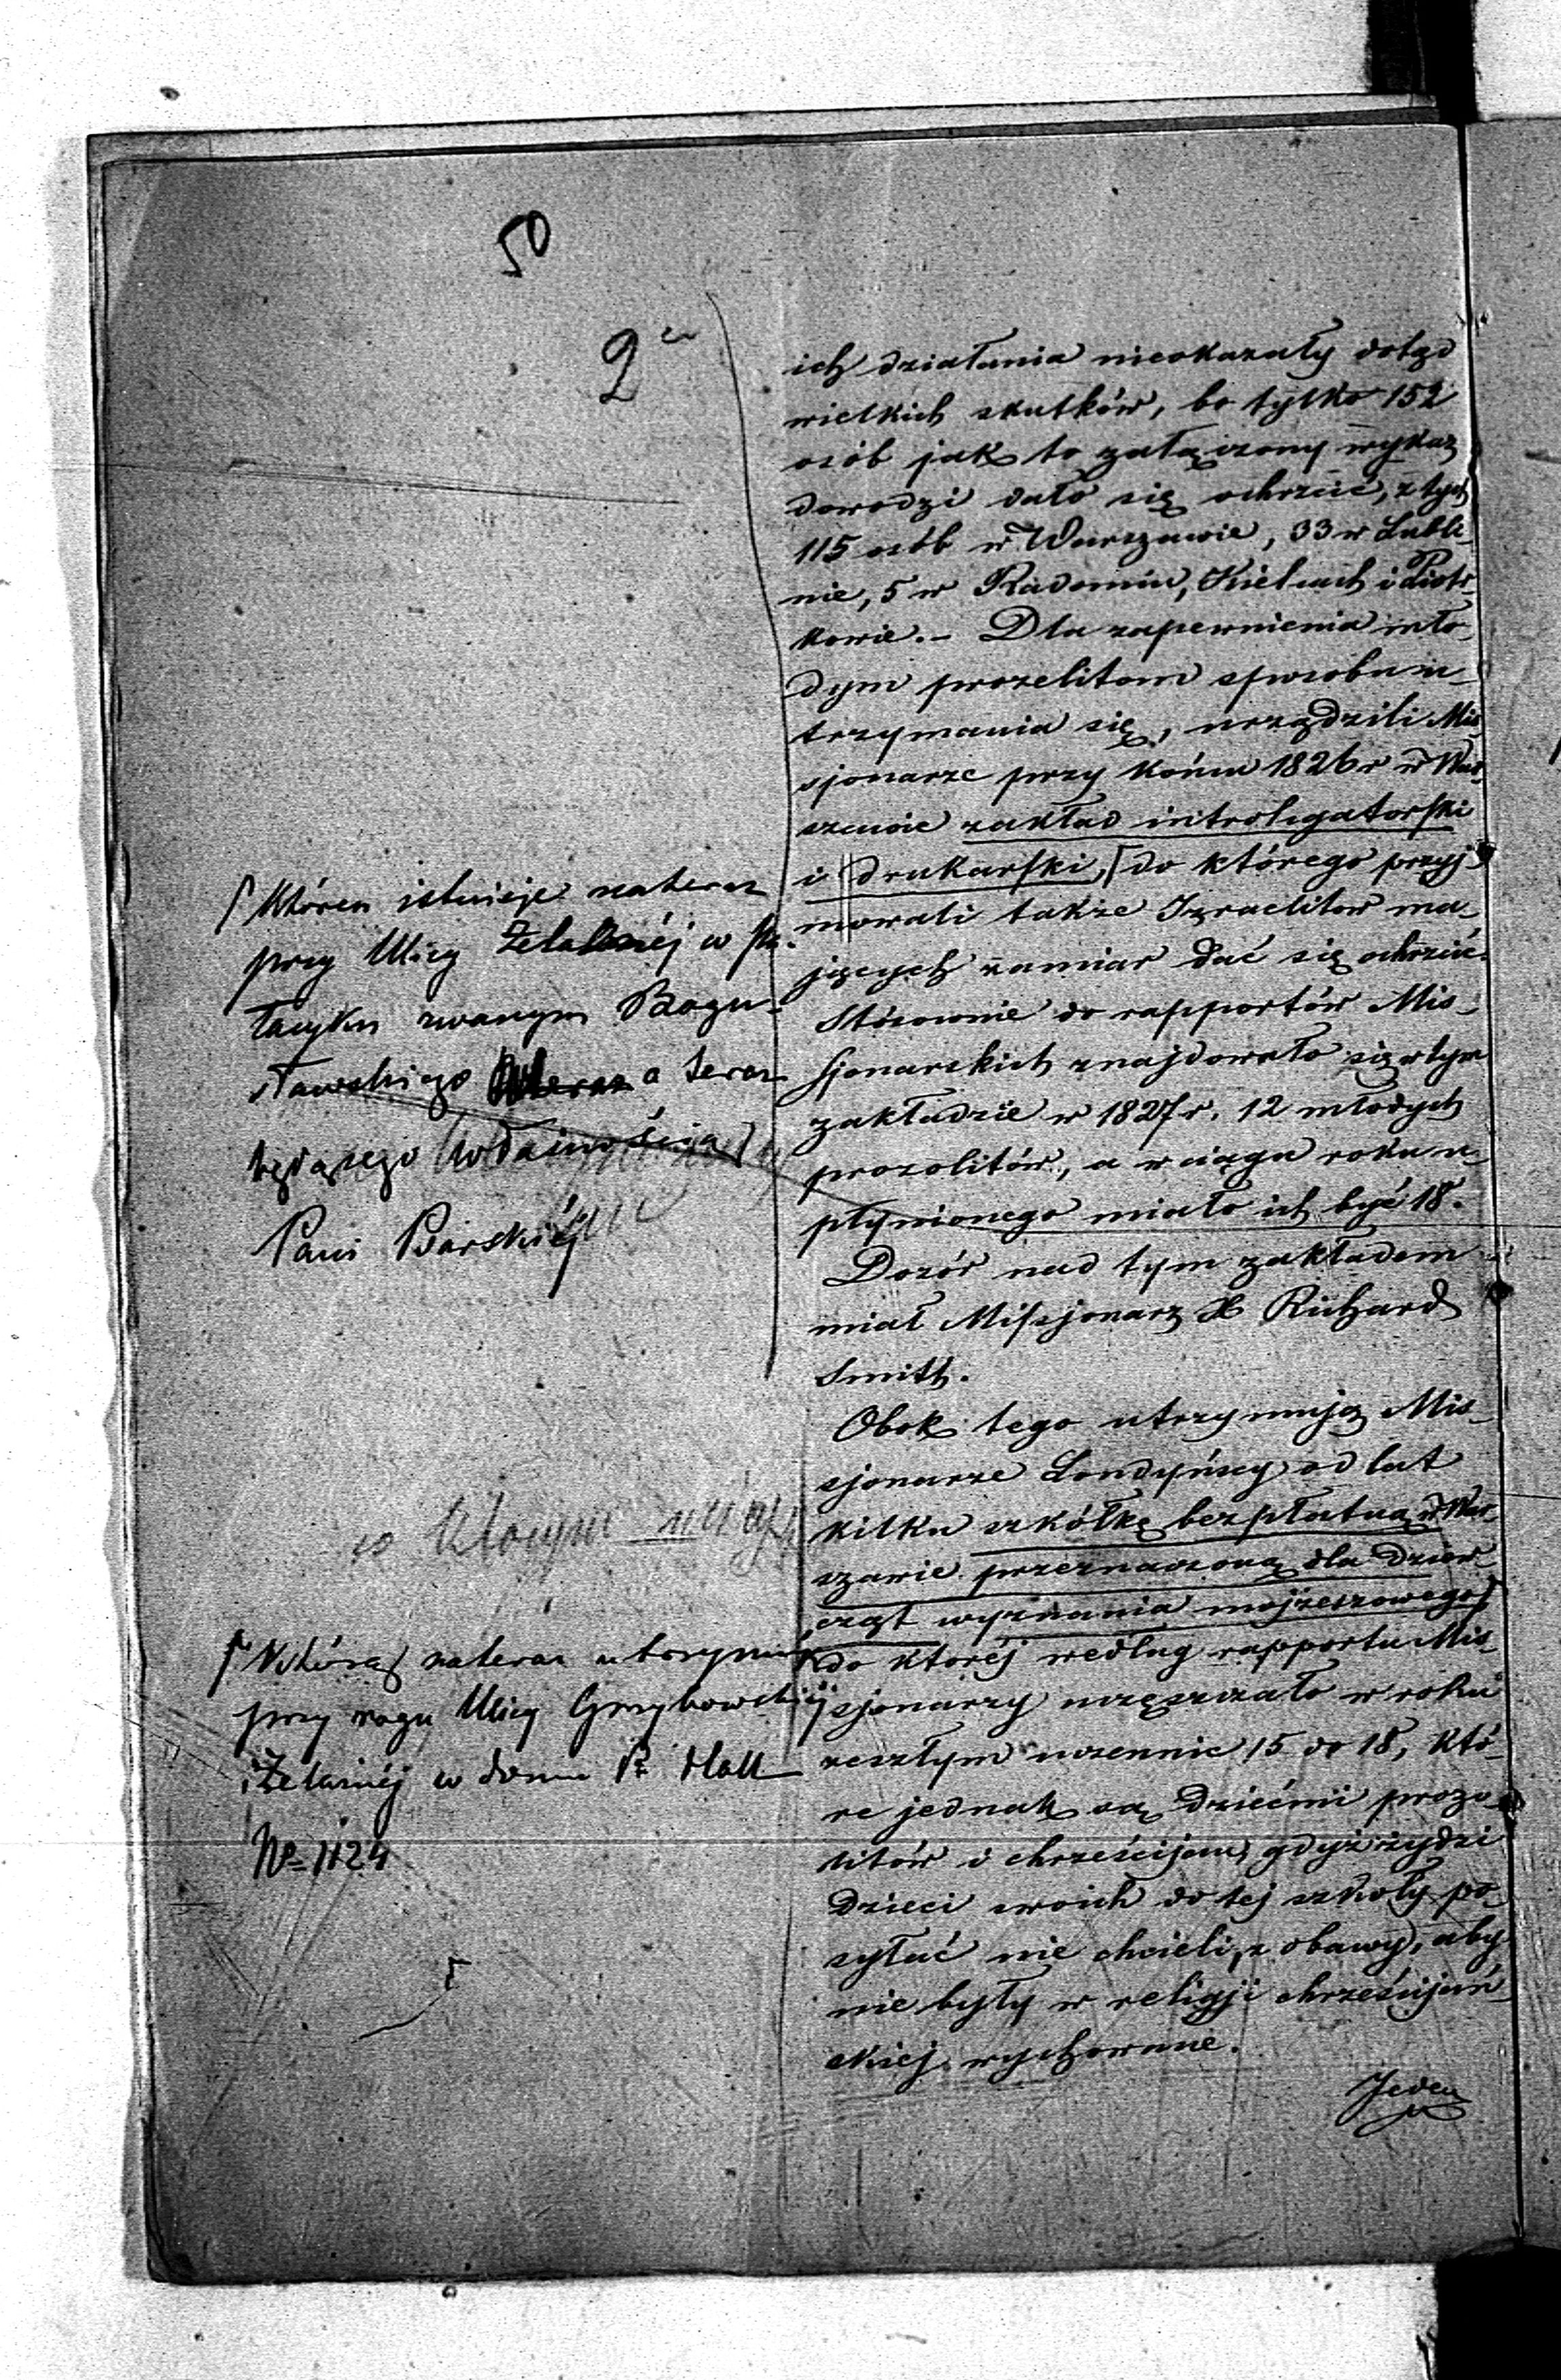 50
2
ich działania nieokazały dotąd
wielkich skutków, bo tylko 152
osób jak to załączony wykaz
dowodzi dało się ochrzcić, z tych
115 osób w Warszawie, 33 w Lubli-
nie, 5 w Radomiu, Kielcach i Piotr-
kowie. – Dla zapewnienia mło-
dym prozelitom sposobu u-
trzymania się, urządzili Mis-
sjonarze przy końcu 1826 r w War-
szawie zakład introligatorski
i drukarski, do którego przyj-
mowali także Izraelitów ma-
jących zamiar dać się ochrzcić.
Stósownie do rapportów Mis-
sjonarskich znajdowało się w tym
zakładzie w 1827 r. 12 młodych
prozolitów, a w ciągu roku u-
płynionego miało ich być 18.
Dozór nad tym zakładem
miał Missjonarz X Richard
Smith.
Obok tego utrzymują Mis-
sjonarze Londyńscy od lat
kilku szkółkę bezpłatną w War-
szawie przeznaczoną dla dziew-
cząt wyznania mojżeszowego
do której według rapportu Mis-
sjonarzy uczęszczało w roku
zeszłym uczennic 15 do 18, któ-
re jednak są dziećmi prozo-
litów i chrześcijan, gdyż żydzi
dzieci swoich do tej szkoły po-
syłać nie chcieli, z obawy, aby
nie były w religji chrześcijań-
skiej wychowane.
Jeden
Któren istnieje nateraz
przy Ulicy Żelaznéj w Pa-
łacyku zwanym Bogu-
sławskiego a teraz
będącego własnością
Pani Barskiéj
w którym
Która nateraz utrzymuje
przy rogu Ulicy Grzybowskiéj
i Żelaznéj w domu P. Hall
No 1124